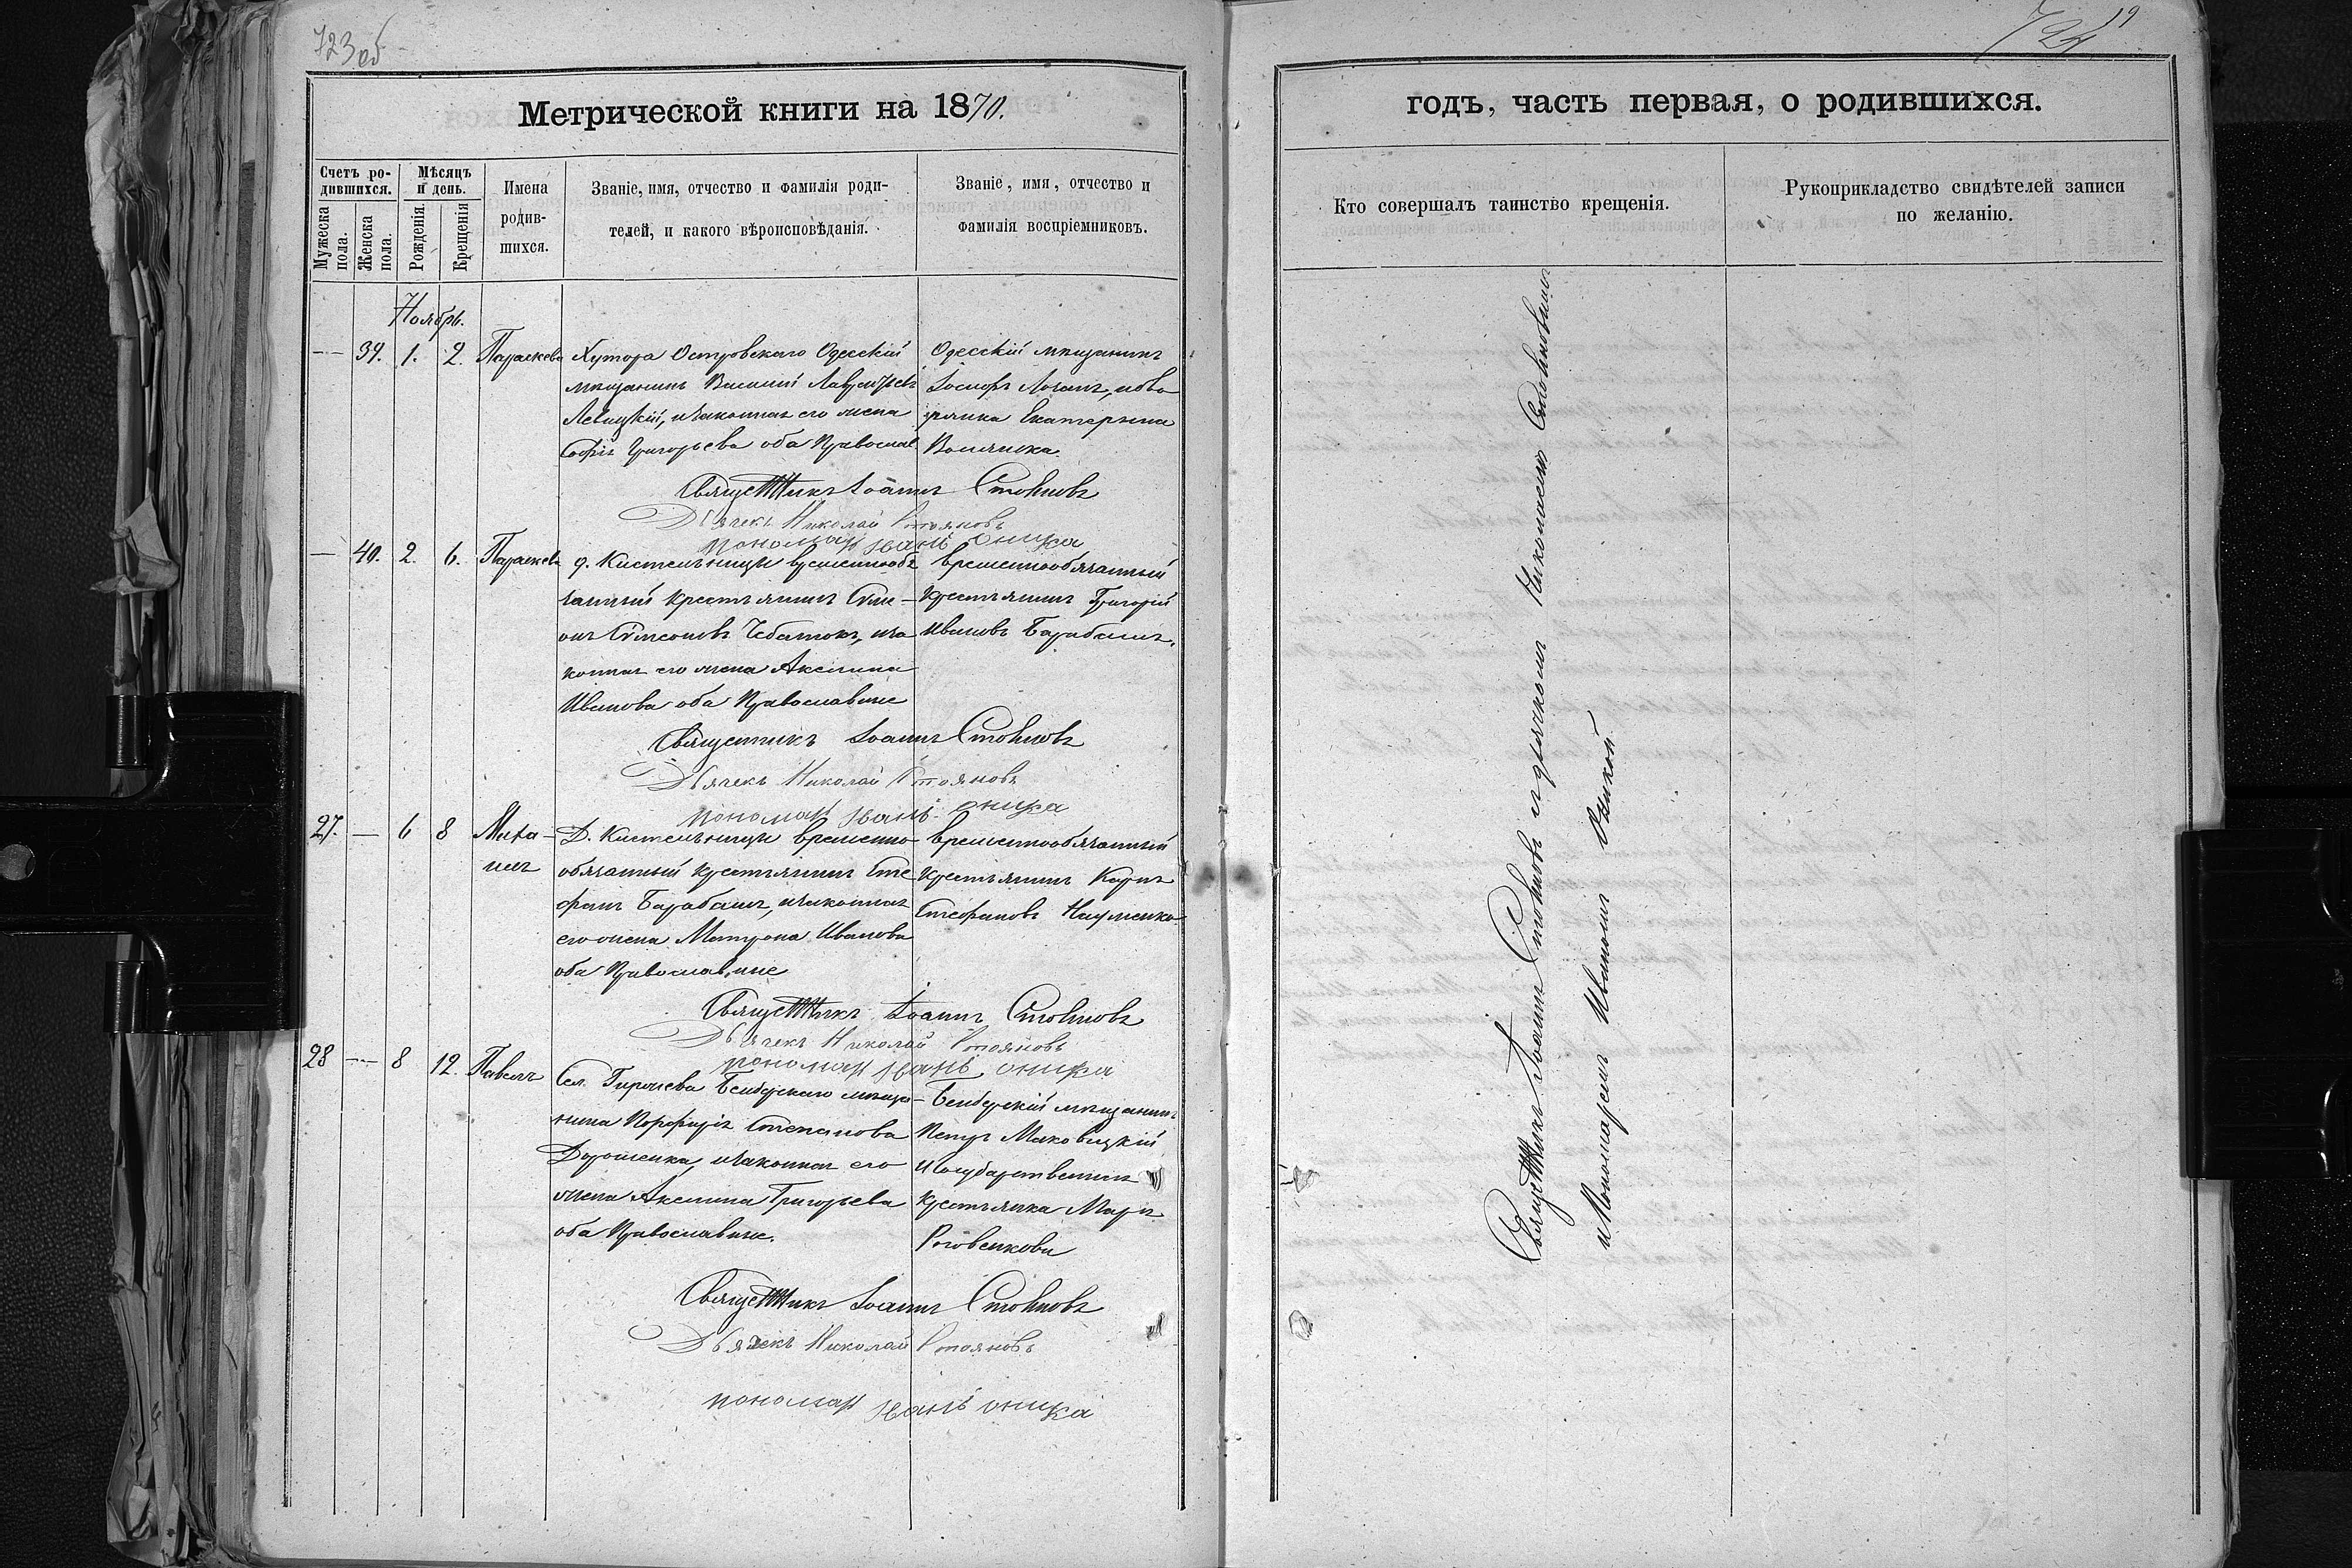 723 об
Метрической книги на 1870.
Счетъ ро-
дившихся.
Мѣсяцъ
и день.
Мужеска
пола.
Женска
пола.
Рожденія.
Крещенія
Имена
родив-
шихся.
Званіе, имя, отчество и фамилія роди-
телей, и какого вѣроисповѣданія.
Званіе, имя, отчество и
фамилія воспріемниковъ.
Ноябрь.
39. 1. 2. Параскева
Хутора Островскаго Одесскій
мѣщанинъ Василій
Левицкій, и законная его жена
Софія Григорьева оба Православ.
Одесскій мѣщанинъ
Іосифъ
Екатерина
Священникъ Іоаннъ Стояновъ
Дьячекъ Николай Стояновъ
пономар иванъ оница
40. 2. 6. Параскева
д. Кистельницы временнообя
занный крестьянинъ Симе-
онъ Симеоновъ Чебатокъ, и за
конная его жена Акелина
Иванова оба Православные
временнообязанный
Крестьянинъ Григорій
Ивановъ Барабашъ.
Священникъ Іоаннъ Стояновъ
Дьячекъ Николай Стояновъ
пономар иванъ оница
27. 6 8 Миха-
илъ
Д. Кистельницы временно-
обязанный крестьянинъ Сте
фанъ Барабашъ, и законная
его жена Матрона Иванова
оба Православные
временнообязанный
Крестьянинъ Карпъ
Стефановъ Науменко
Священникъ Іоаннъ Стояновъ
Дьячекъ Николай Стояновъ
пономар иванъ оница
28 8 12. Павелъ
Сел. Бендерскаго мѣща-
нина Порфирія Степанова
Дорошенка, и законная его
жена Акелина Григорьева
оба Православные.
Бендерскій мѣщанинъ
Петръ Маковицкій
и государственная
крестьянка Марія
Роговенкова
Священникъ Іоаннъ Стояновъ
Дьячекъ Николай Стояновъ
пономар иванъ оница
724
19
годъ, часть первая, о родившихся.
Кто совершалъ таинство крещенія.
Рукоприкладство свидѣтелей записи
по желанію.
Священникъ Іоаннъ Стояновъ съ дьячкомъ Николаемъ Стояновымъ
и Пономаремъ Иваномъ Оницой